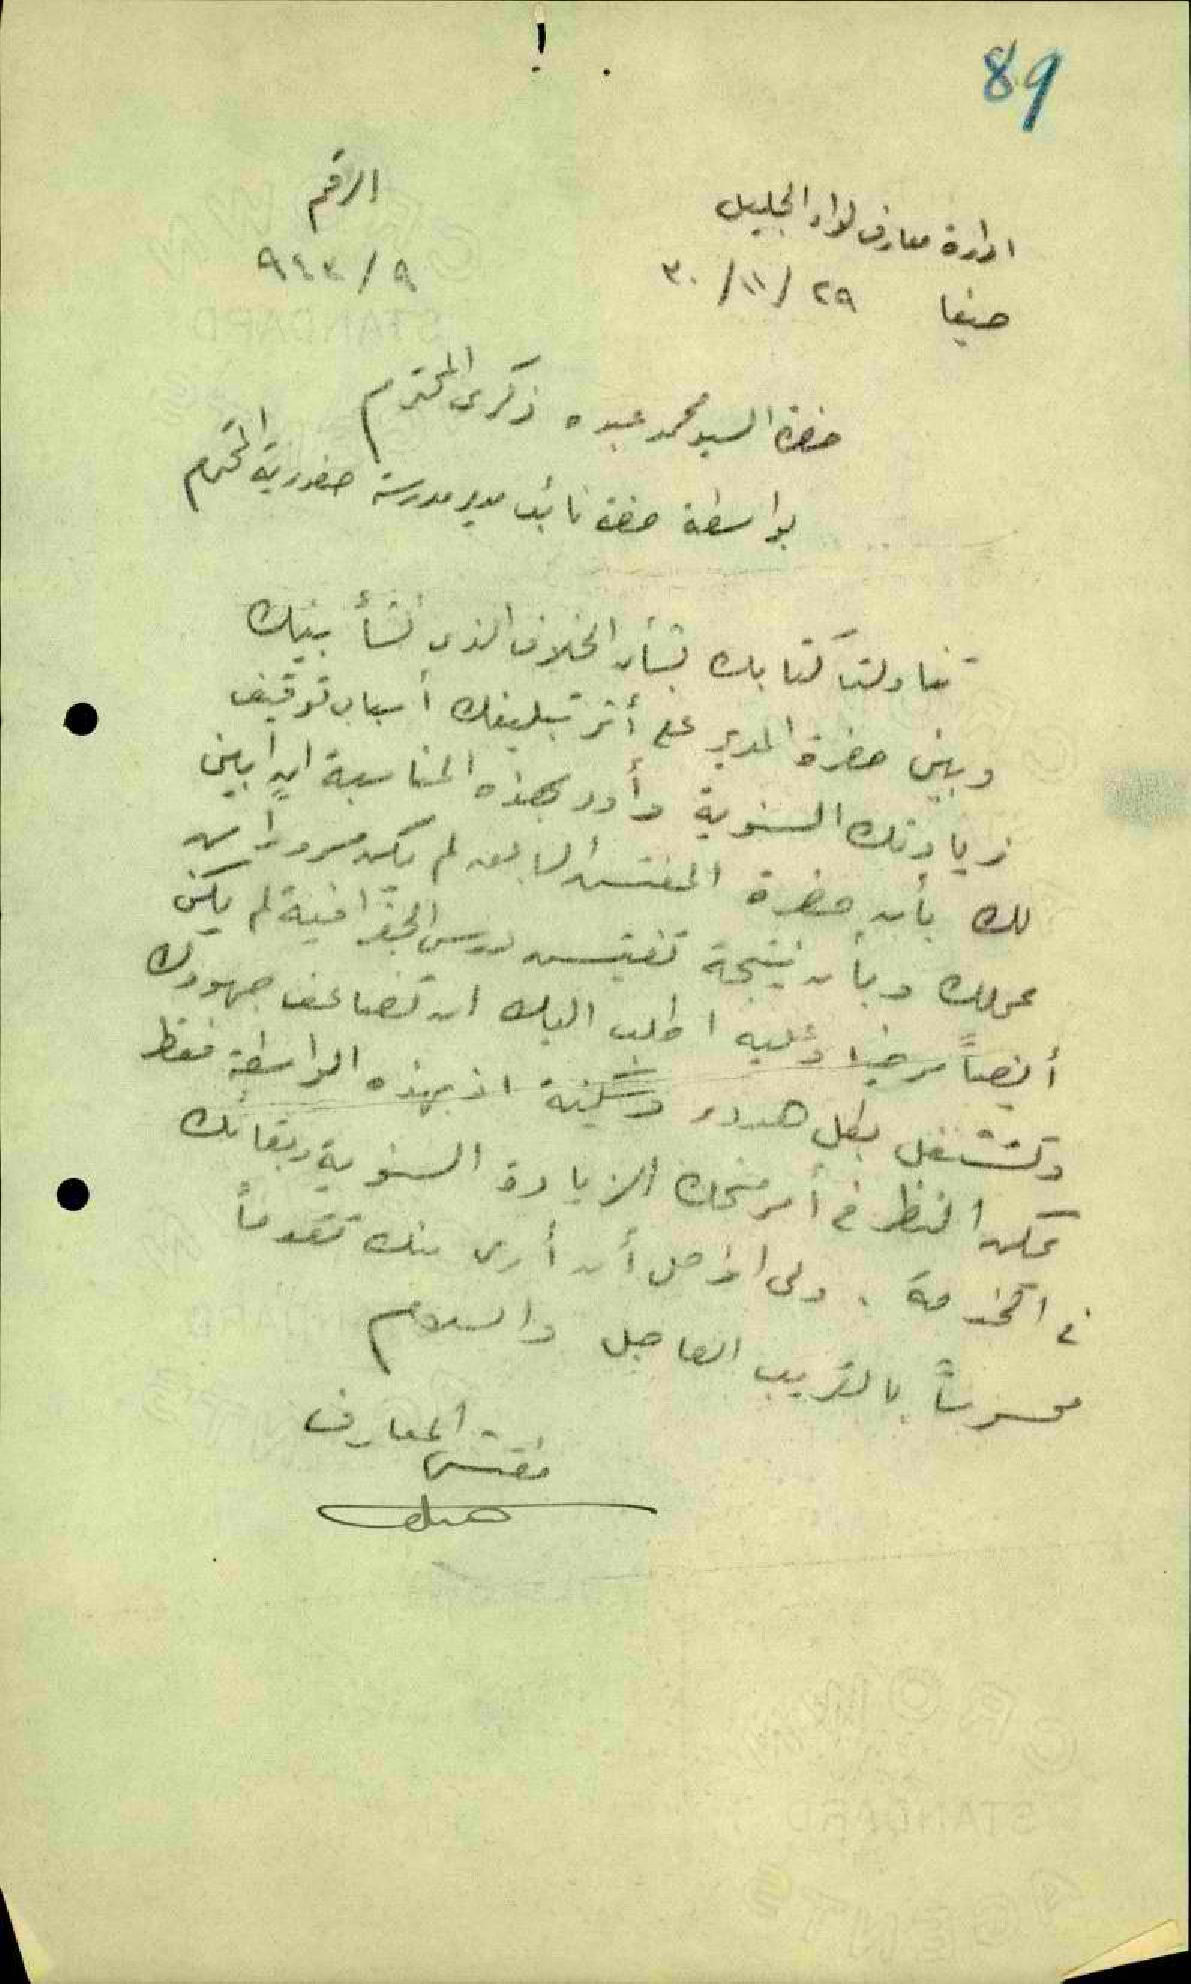 89
الرقم
٩٤٣/٩
ادارة معارف لواء الجليل
حيفا ٢٩/١١/٣٠
حضرة السيد محمد عبده زكري المحترم
بواسطة حضرة نائب مدير مدرسة صفورية المحترم
تناولت كتابك بشأن الخلاف الذي نشأ بينك
وبين حضرة المدير على أثر تبليغك أسباب توقيف
زيادتك السنوية وأود بهذه المناسبة ان أبين
لك بأن حضرة المفتش السابق لم يكن مسروراً من
عملك وبأن نتيجة تفتيش دروس الجغرافية لم يكن
أيضاً مرضيا وعليه اطلب اليك ان تضاعف جهودك
وتشتغل بكل هدوء وسكينة اذ بهذه الواسطة فقط
يمكن النظر في أمر منحك الزيادة السنوية وبقائك
في الخدمة . ولي الامل أن أرى منك تقدماً
محسوساً بالقريب العاجل والسلام
مفتش المعارف
CROWN
STANDARD
AGENTS